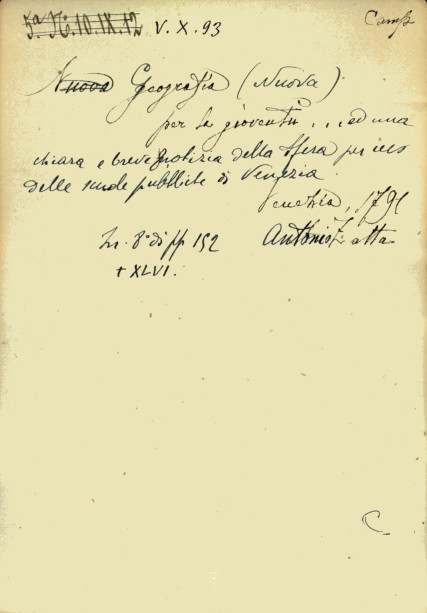 5ª N. 10. IX. 12 V. X. 93 Camp
Nuova Geografia (Nuova)
per la gioventù ... ed una
chiara e breve notizia della sfera per uso
delle scuole pubbliche di Venezia.
Venezia, 179
Antonio Zatta
In 8° di pp 152
+ XLVI.
C